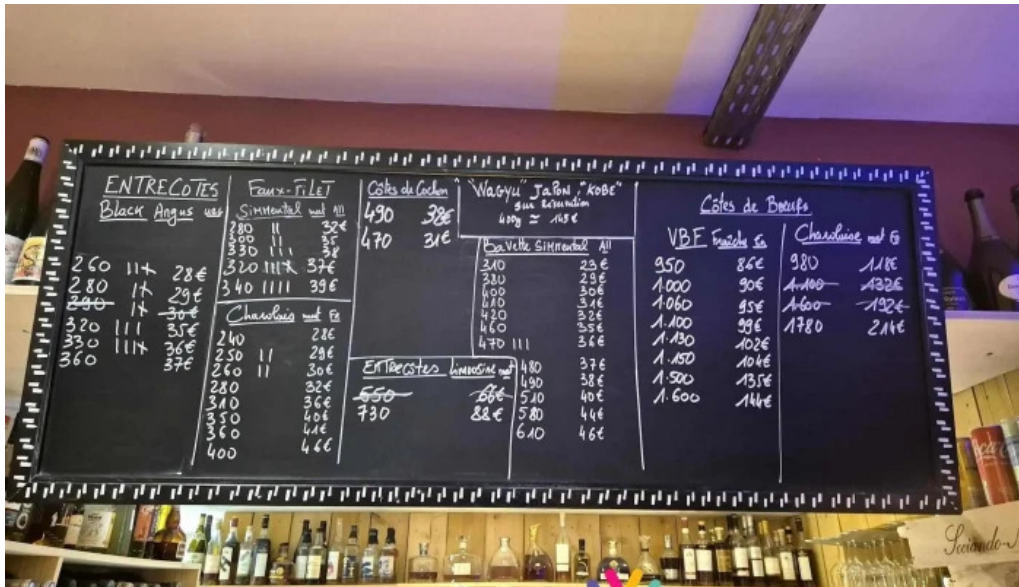 ENTRECOTES
Black Angus
260 28€
280 29€
290 30€
320 IIII 35€
330 36€
360 37€
Faux-FILET
Simmental mat All
280 II 32€
300 II 35
330 III 38
320 37€
340 IIII 39€
Charolais mat Fr
240 28€
250 II 29€
260 II 30€
280 32€
310 36€
350 40€
360 41€
400 46€
Côtes de Cochon
490 38€
470 31€
"Wagyu" JaPoN, "KOBE"
sur Réservation
400g ≈
BaVette SIMMental All
310 23€
380 29€
400 30€
410 31€
420 32€
460 35€
470 III 36€
480 37€
490 38€
510 40€
580 44€
610 46€
ENTRECôtes Limousine mat
550 66€
730 88€
Côtes de Boeufs
VBF Fraîche
950 86€
1.000 90€
1.060 95€
1.100 99€
1.130 102€
1.150 104€
1.500 135€
1.600 144€
Charolaise mat Fr
980 118€
1.100 132€
1.600 192€
1780 214€
Sociando-